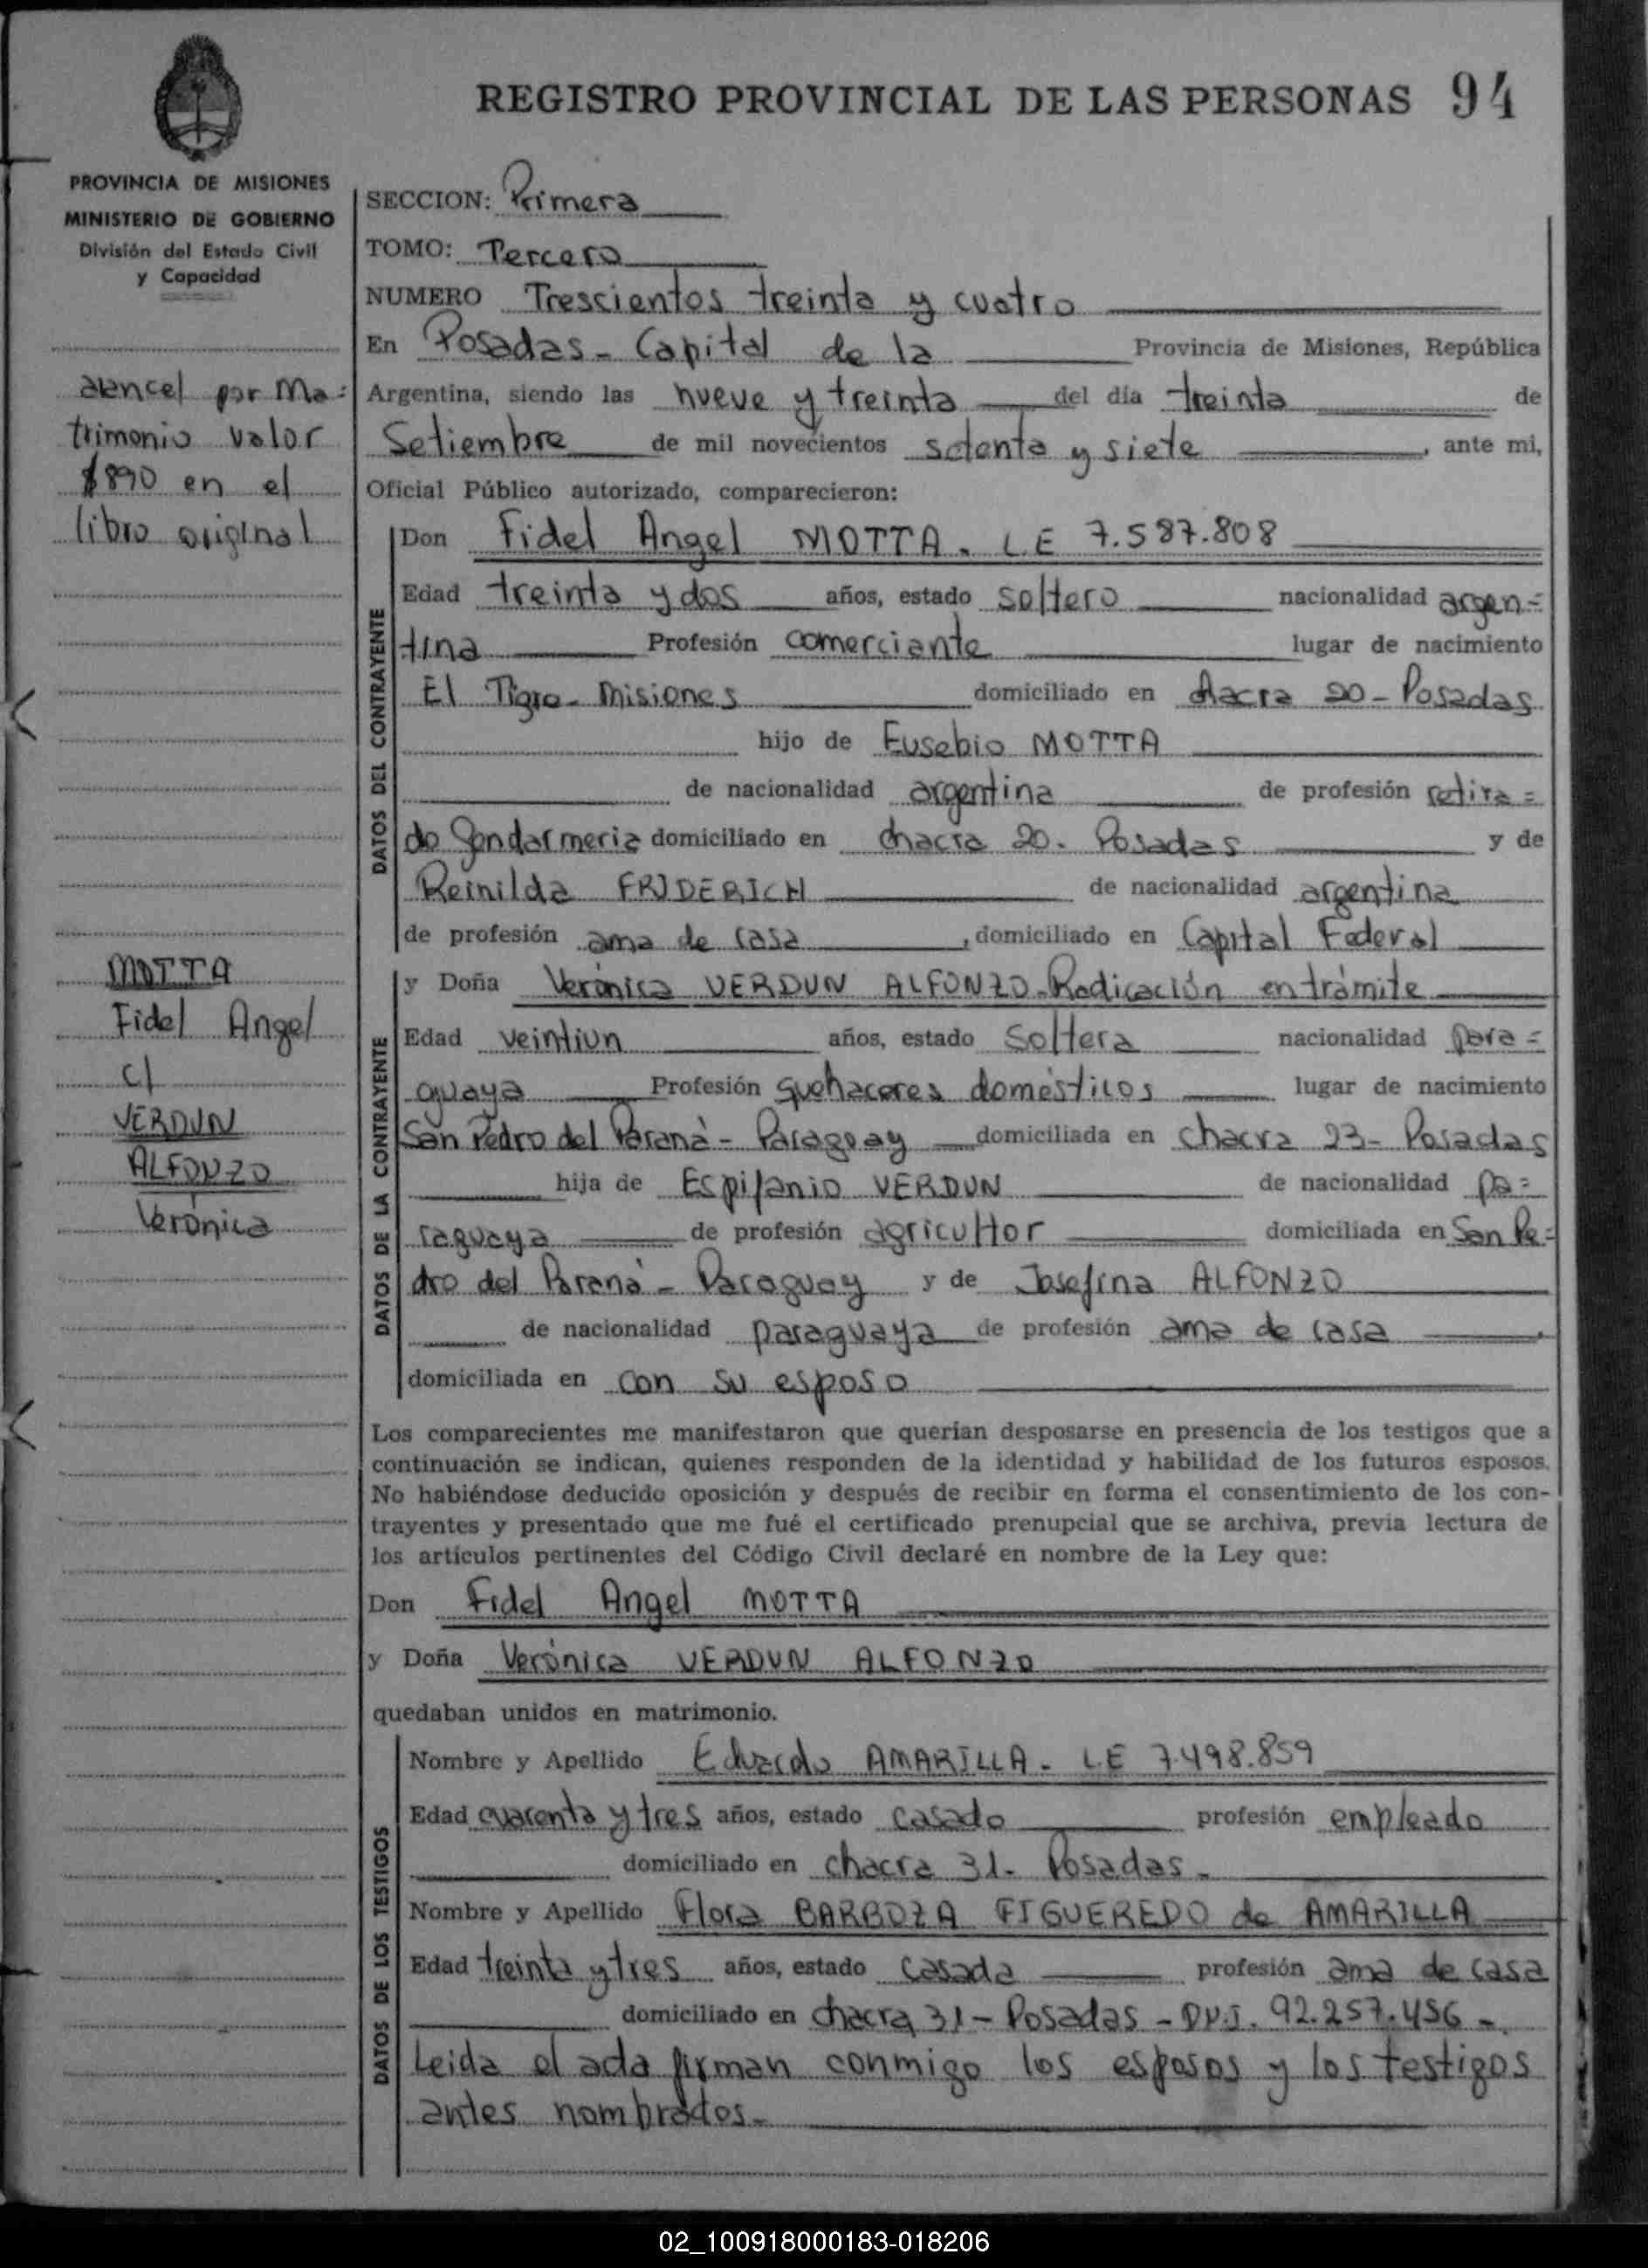 REGISTRO PROVINCIAL DE LAS PERSONAS 94
PROVINCIA DE MISIONES
MINISTERIO DE GOBIERNO
División del Estado Civil
y Capacidad
arancel por Ma=
trimonio valor
$890 en el
libro original
MOTTA
Fidel Angel
c/
VERDUN
ALFONZO
Verónica
SECCION: Primera
TOMO: Tercero
NUMERO Trescientos treinta y cuatro
En Posadas - Capital de la Provincia de Misiones, República
Argentina, siendo las nueve y treinta del día treinta de
Setiembre de mil novecientos setenta y siete, ante mi,
Oficial Público autorizado, comparecieron:
DATOS DEL CONTRAYENTE
Don Fidel Angel MOTTA. L.E 7.587.808
Edad treinta y dos años, estado soltero nacionalidad argen=
tina Profesión comerciante lugar de nacimiento
El Tigre - Misiones domiciliado en chacra 20 - Posadas
hijo de Eusebio MOTTA
de nacionalidad argentina de profesión retira=
do Gendarmeria domiciliado en chacra 20. Posadas y de
Reinilda FRIDERICH de nacionalidad argentina
de profesión ama de casa, domiciliado en Capital Federal
DATOS DE LA CONTRAYENTE
y Doña Verónica VERDUN ALFONZO - Radicación en trámite
Edad veintiun años, estado soltera nacionalidad para=
guaya Profesión quehaceres domésticos lugar de nacimiento
San Pedro del Paraná - Paraguay domiciliada en chacra 23 - Posadas
hija de Espifanio VERDUN de nacionalidad pa=
raguaya de profesión agricultor domiciliada en San Pe=
dro del Paraná - Paraguay y de Josefina ALFONZO
de nacionalidad paraguaya de profesión ama de casa,
domiciliada en con su esposo
Los comparecientes me manifestaron que querían desposarse en presencia de los testigos que a
continuación se indican, quienes responden de la identidad y habilidad de los futuros esposos.
No habiéndose deducido oposición y después de recibir en forma el consentimiento de los con-
trayentes y presentado que me fué el certificado prenupcial que se archiva, previa lectura de
los artículos pertinentes del Código Civil declaré en nombre de la Ley que:
Don Fidel Angel MOTTA
y Doña Verónica VERDUN ALFONZO
quedaban unidos en matrimonio.
DATOS DE LOS TESTIGOS
Nombre y Apellido Eduardo AMARILLA - L.E 7.498.859
Edad cuarenta y tres años, estado casado profesión empleado
domiciliado en chacra 31 - Posadas -
Nombre y Apellido Flora BARBOZA FIGUEREDO de AMARILLA
Edad treinta y tres años, estado casada profesión ama de casa
domiciliado en chacra 31 - Posadas - D.N.I. 92.257.456 -
Leida el acta firman conmigo los esposos y los testigos
antes nombrados -
02_100918000183-018206